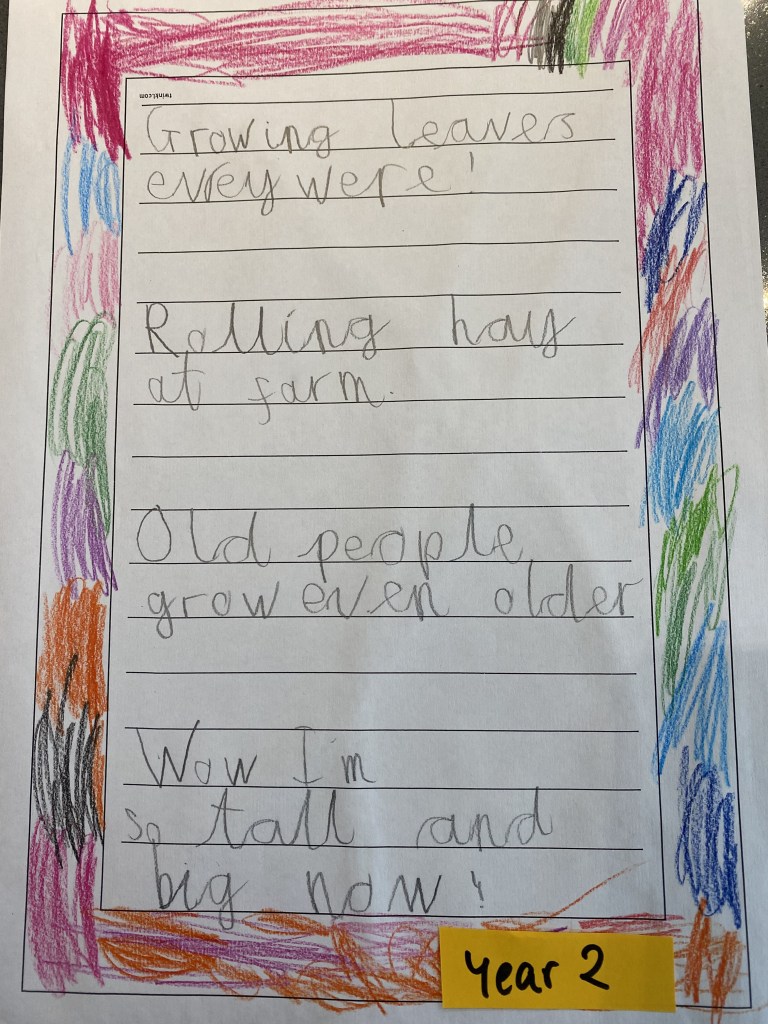 twinkl.com
Growing leavers
evrey were!
Rolling hay
at farm.
Old people
grow even older
Wow I'm
so tall and
big now!
Year 2